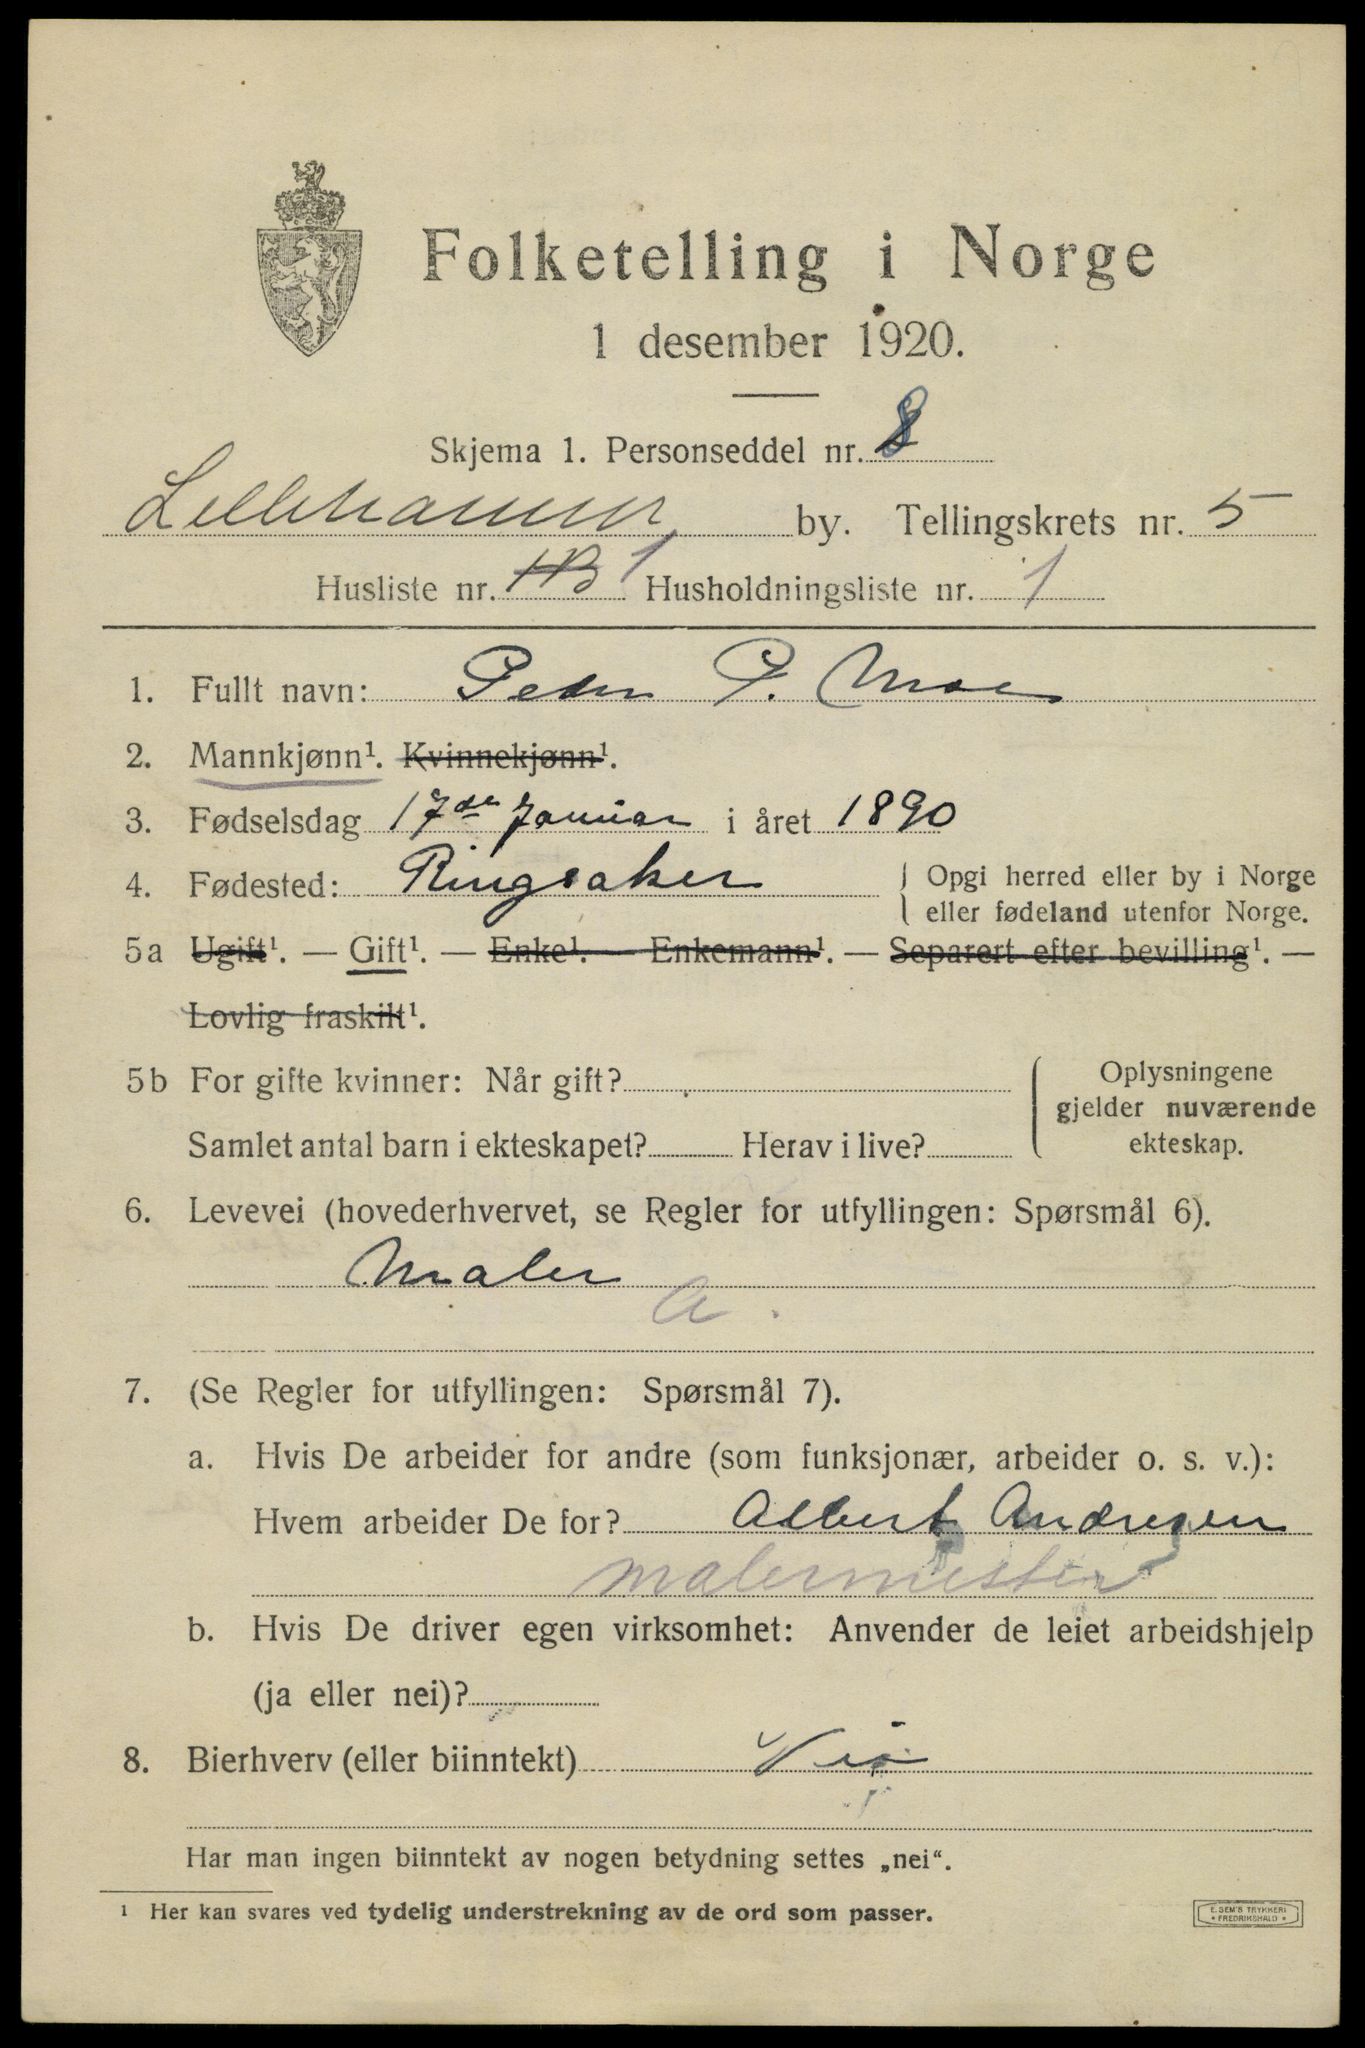 Folketelling i Norge
1 desember 1920.
Skjema 1. Personseddel nr. 8
Lillehammer by. Tellingskrets nr. 5
Husliste nr. 1B 1 Husholdningsliste nr. 1
1. Fullt navn: Peder P. Moe
2. Mannkjønn¹. Kvinnekjønn¹.
3. Fødselsdag 17de Januar i året 1890
4. Fødested: Ringsaker { Opgi herred eller by i Norge
eller fødeland utenfor Norge.
5a Ugift¹. — Gift¹. — Enke¹. — Enkemann¹. — Separert efter bevilling¹. —
Lovlig fraskilt¹.
5b For gifte kvinner: Når gift? { Oplysningene
gjelder nuværende
Samlet antal barn i ekteskapet? Herav i live? ekteskap.
6. Levevei (hovederhvervet, se Regler for utfyllingen: Spørsmål 6).
Maler
a.
7. (Se Regler for utfyllingen: Spørsmål 7).
a. Hvis De arbeider for andre (som funksjonær, arbeider o. s. v.):
Hvem arbeider De for? Albert Andresen
malermester
b. Hvis De driver egen virksomhet: Anvender de leiet arbeidshjelp
(ja eller nei)?
8. Bierhverv (eller biinntekt) Nei
Har man ingen biinntekt av nogen betydning settes „nei“.
¹ Her kan svares ved tydelig understrekning av de ord som passer.
E. SEM'S TRYKKERI
• FREDRIKSHALD •